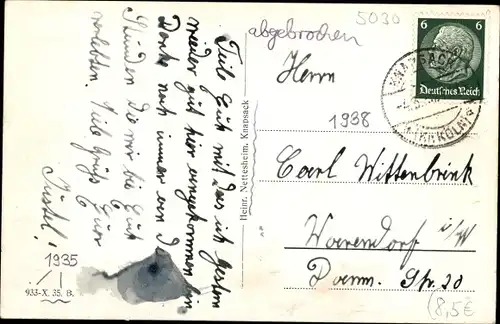 5030
abgebrochen
6
Deutsches Reich
KNAPSACK
(KR. KÖLN)
Herrn
1938
Carl Wittenbrink
Warendorf i/W
Damm. Str. 20
(8,5€
Heinr. Nettesheim, Knapsack
Teile Euch mit das ich gestern
wieder gut hier angekommen bin
Denke noch immer an d
Stunden die wir bei Euch
verlebten. Viele Grüße Eur
Justel!
1935
933-X. 35. B.